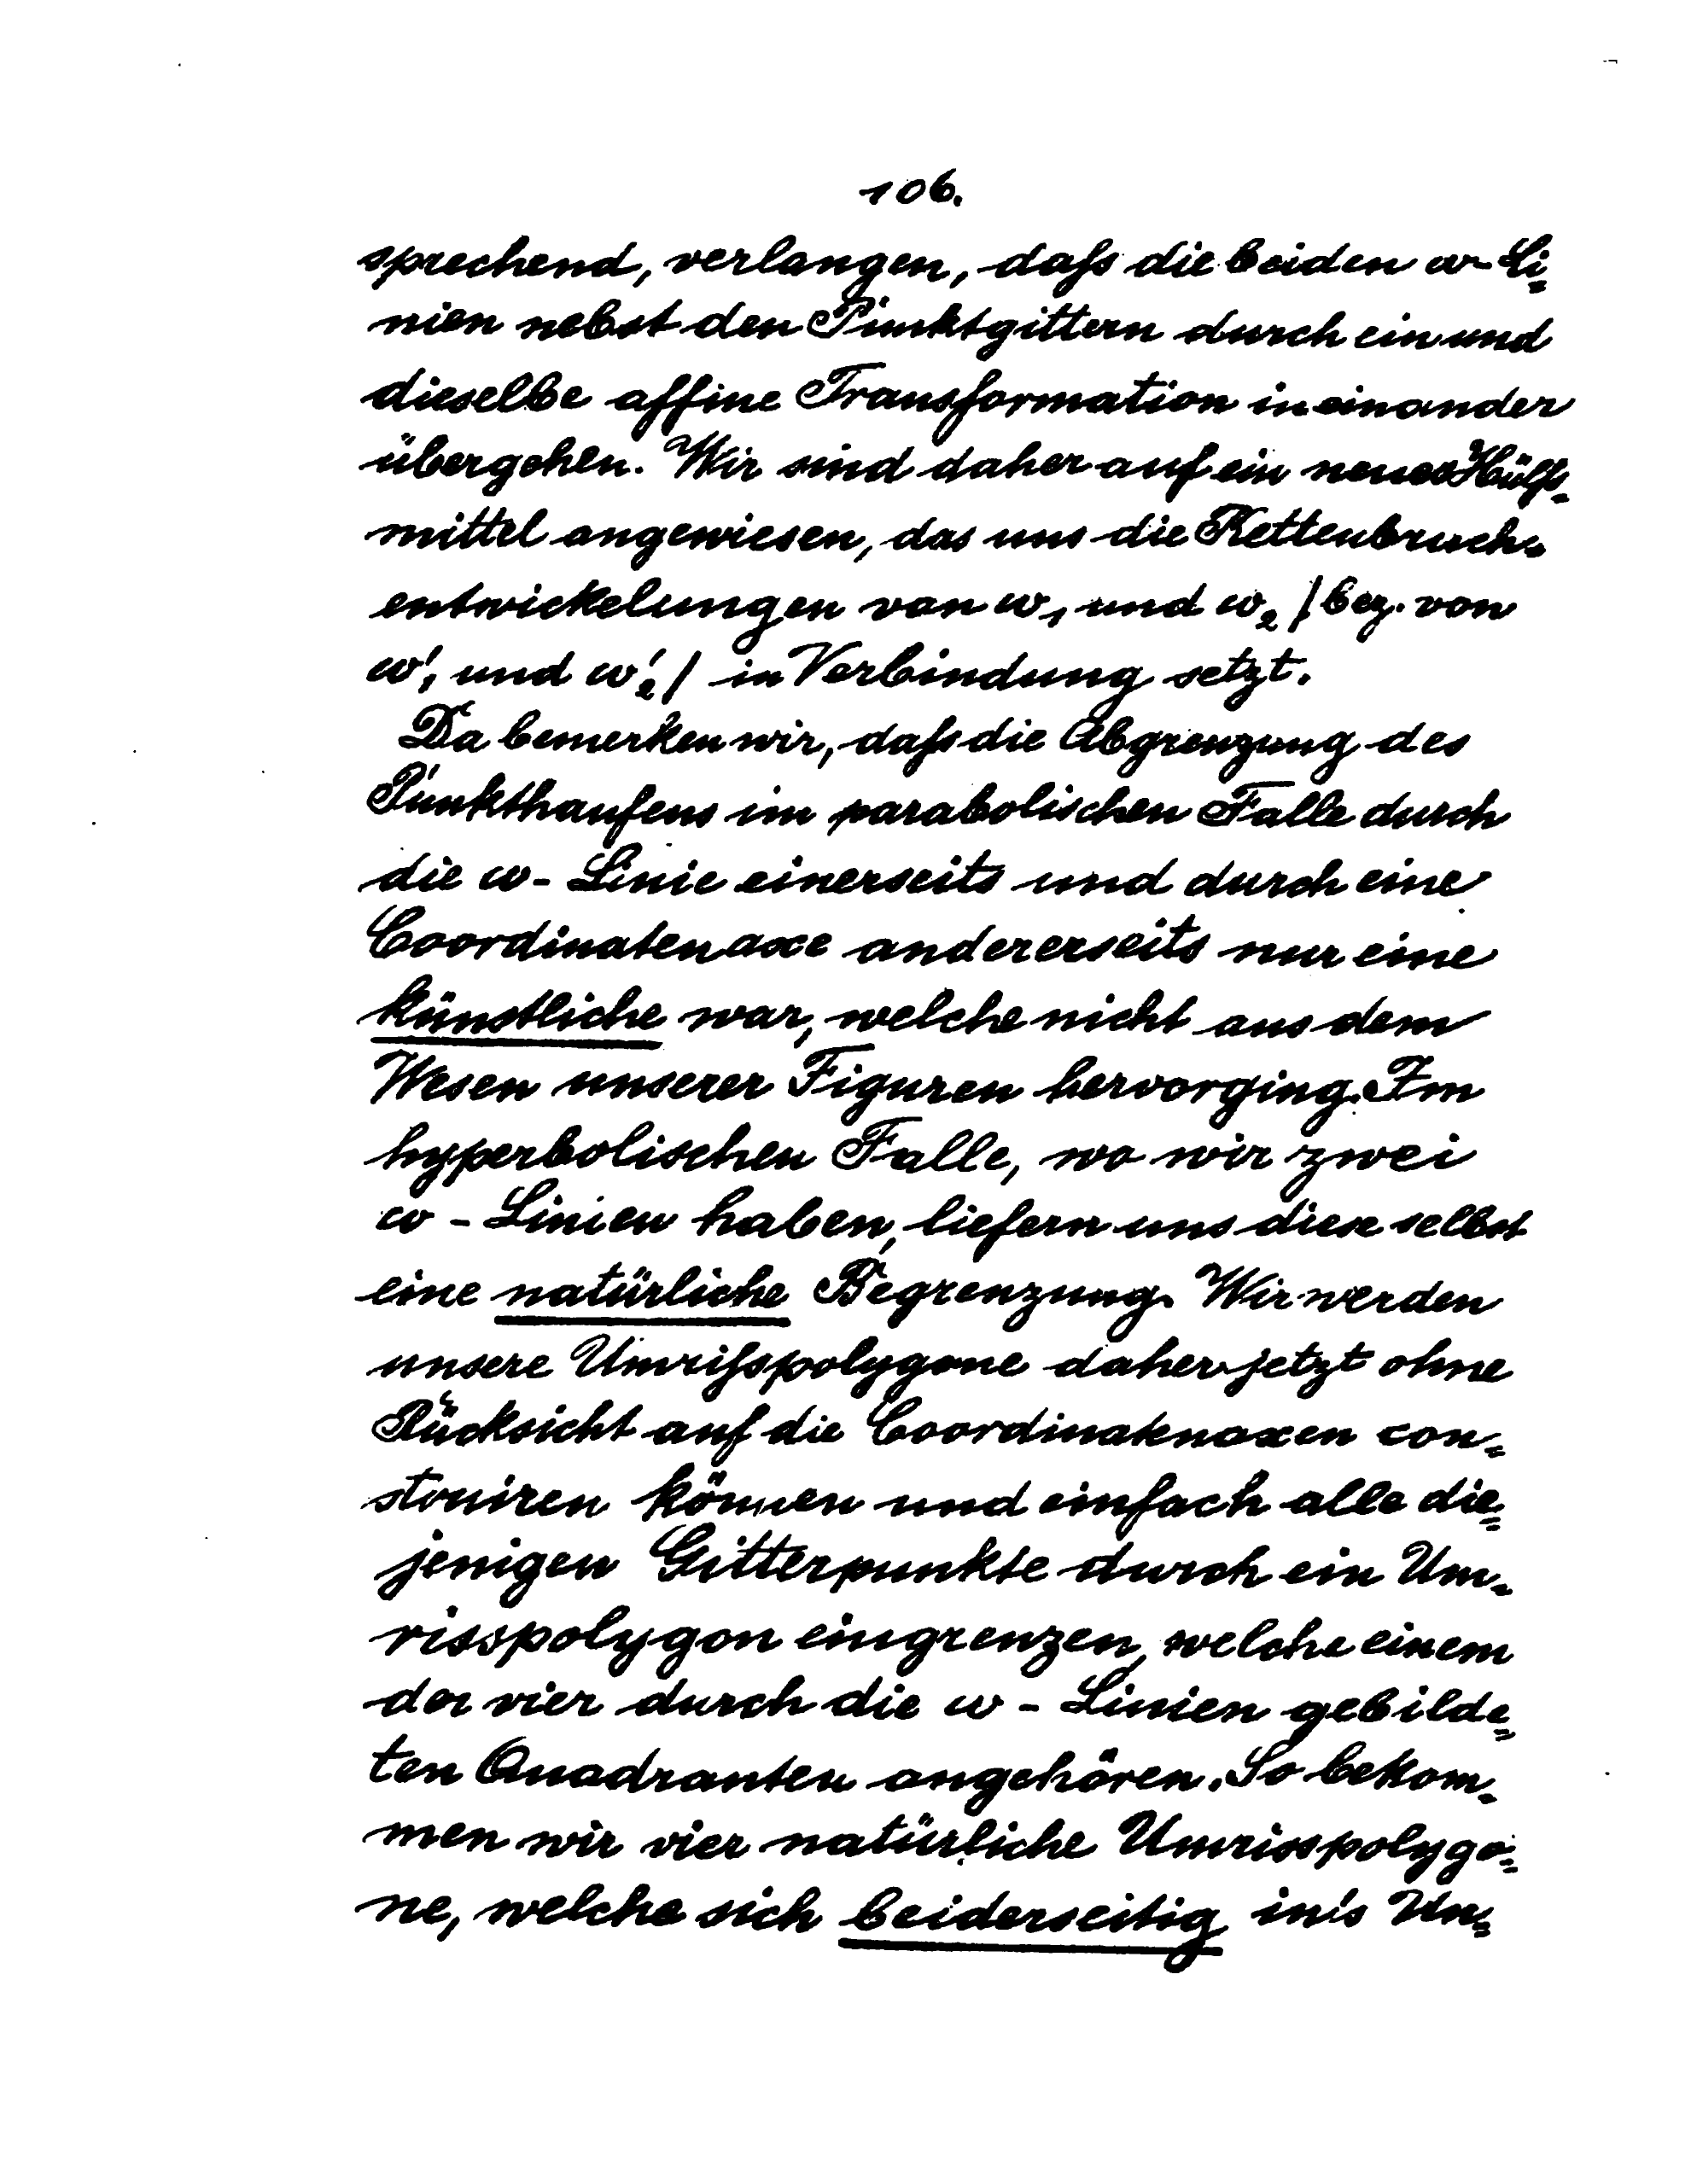 106.
sprechend, verlangen, daſs die beiden ω-Li-
nien nebst den Punktgittern durch ein und
dieselbe affine Transformation in einander
übergehen. Wir sind daher auf ein neues Hülfs-
mittel angewiesen, das uns die Kettenbruch-
entwickelungen von ω₁ und ω₂ / bez. von
ω'₁ und ω'₂ / in Verbindung setzt.
Da bemerken wir, daſs die Abgrenzung des
Punkthaufens im parabolischen Falle durch
die ω - Linie einerseits und durch eine
Coordinatenaxe andererseits nur eine
künstliche war, welche nicht aus dem
Wesen unserer Figuren hervorging. Im
hyperbolischen Falle, wo wir zwei
ω - Linien haben, liefern uns diese selbst
eine natürliche Begrenzung. Wir werden
unsere Umriſspolygone daher jetzt ohne
Rücksicht auf die Coordinatenaxen con-
struiren können und einfach alle die-
jenigen Gitterpunkte durch ein Um-
risspolygon eingrenzen, welche einem
der vier durch die ω - Linien gebilde-
ten Quadranten angehören. So bekom-
men wir vier natürliche Umrisspolygo-
ne, welche sich beiderseitig in's Un-